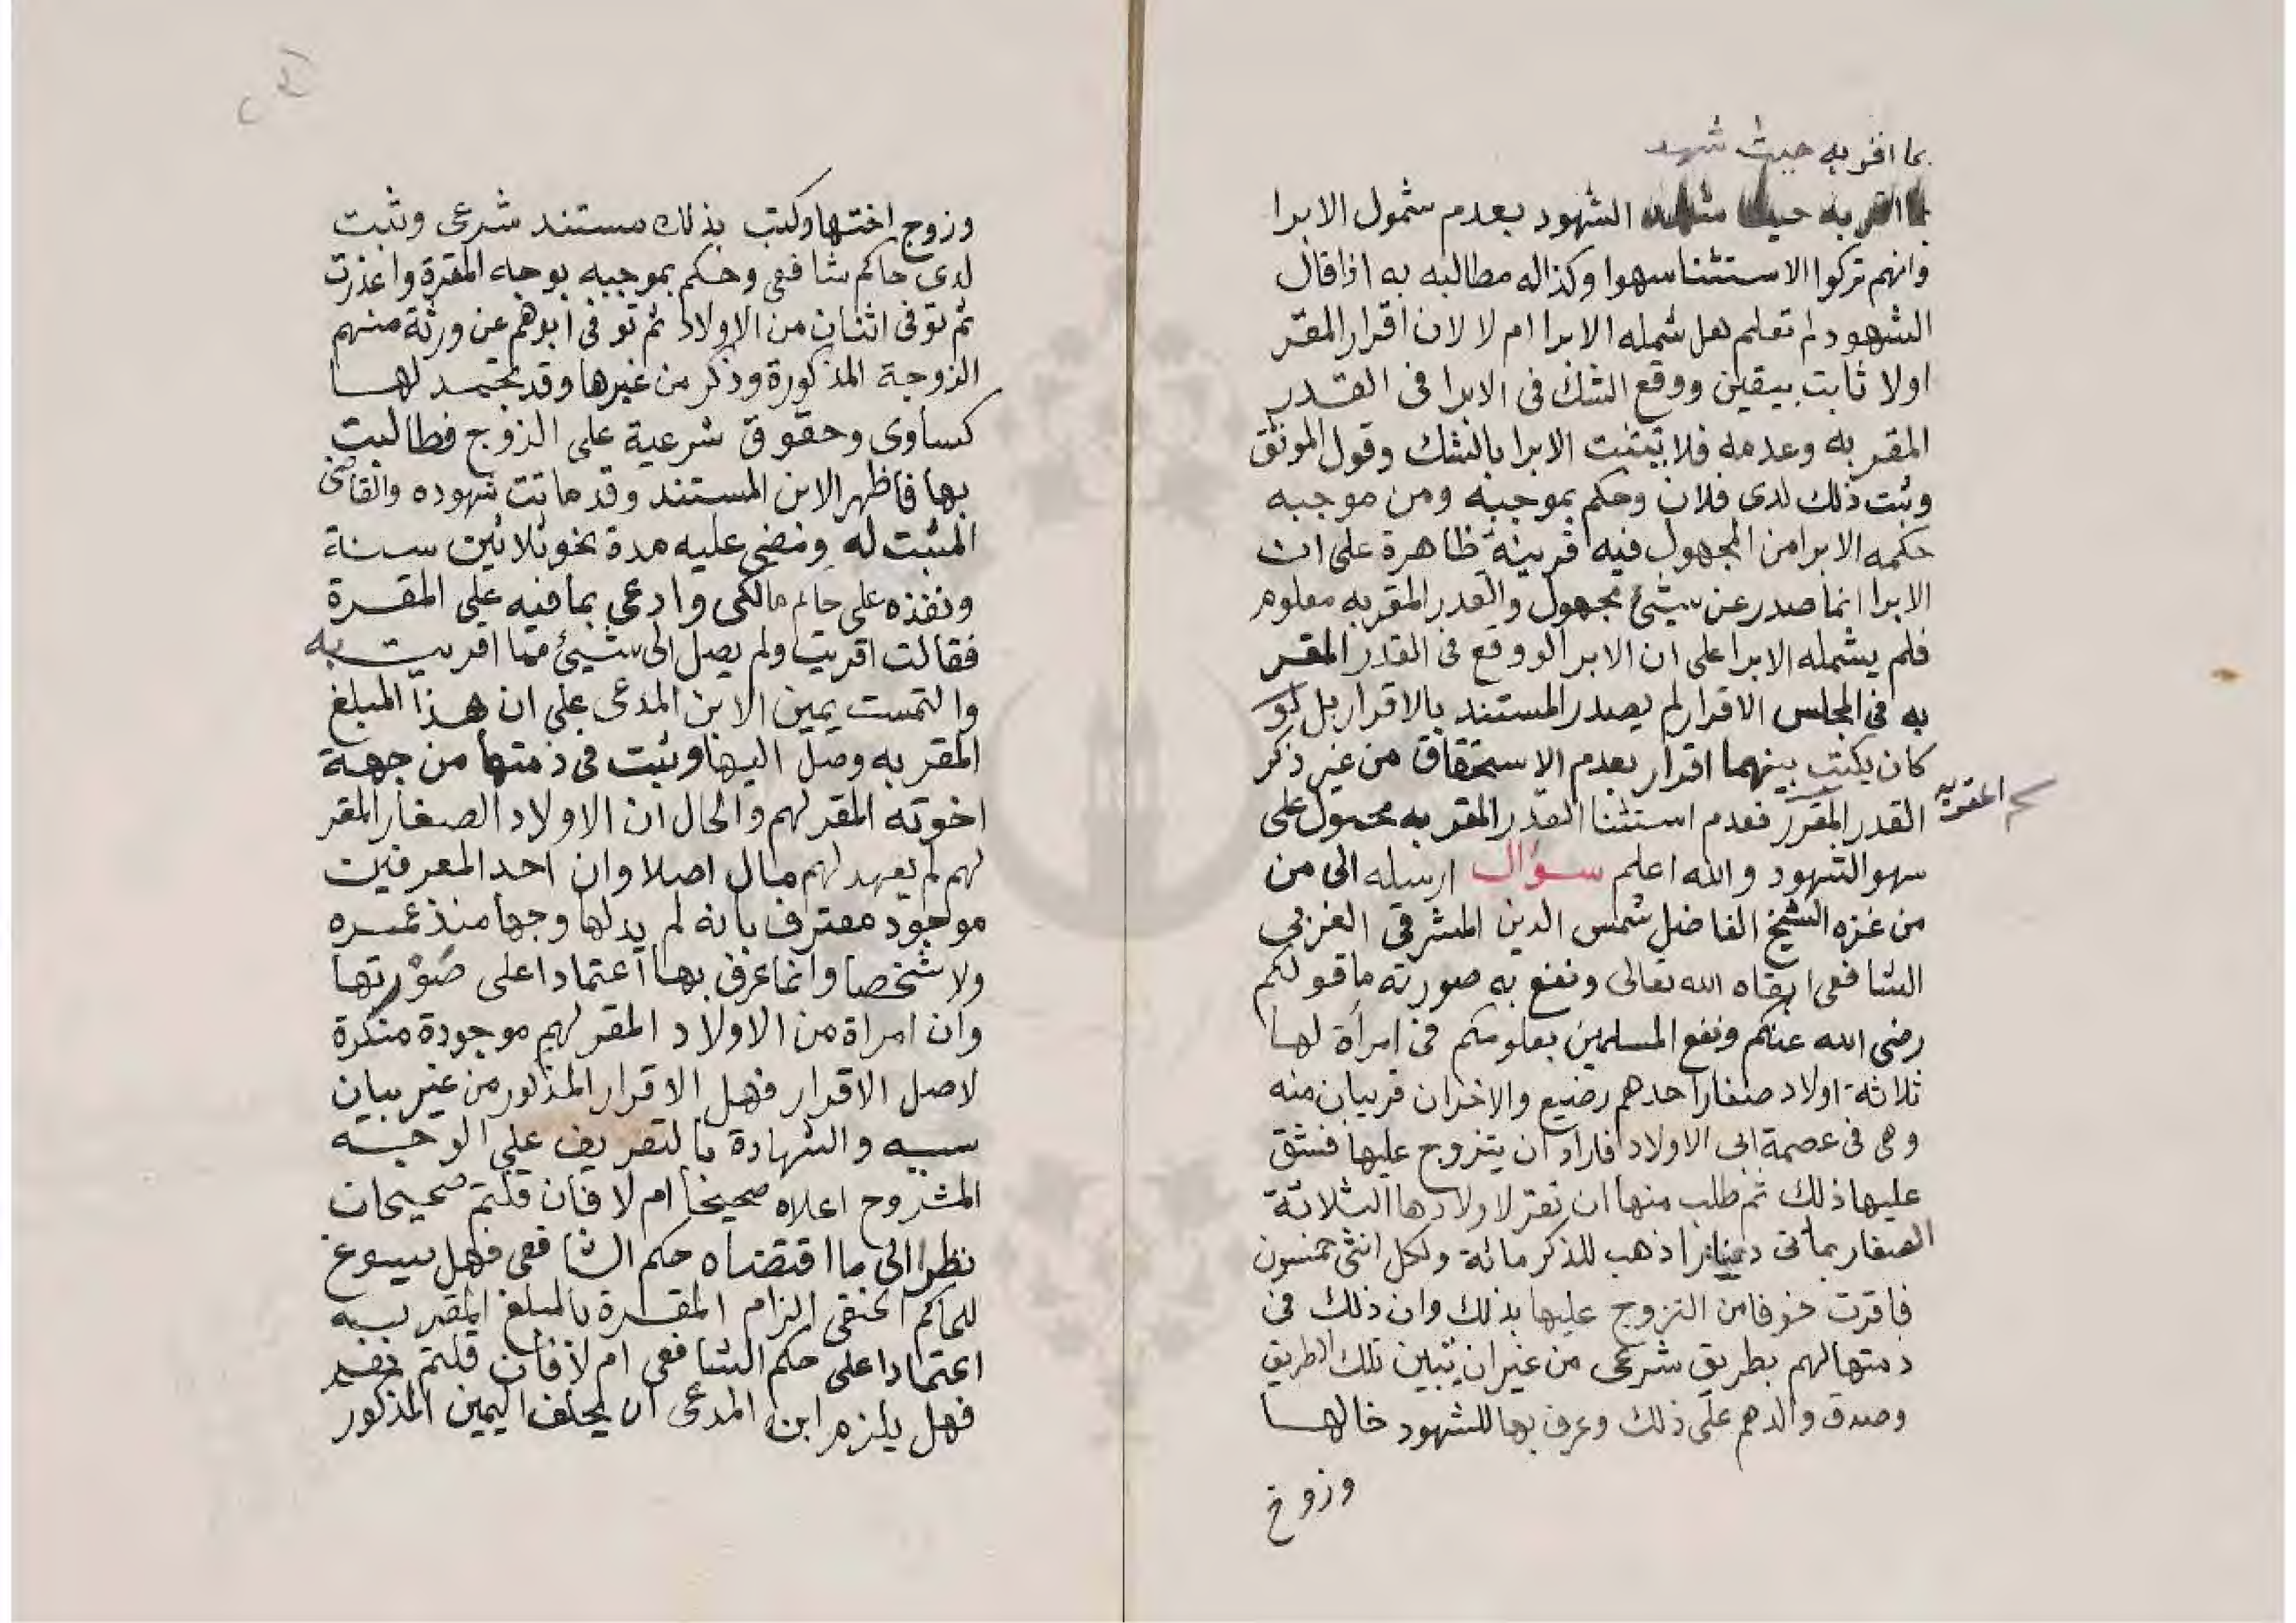 بما اقر به حيث شهد
بما اقر به حيث شهد الشهود بعدم شمول الابرا
وانهم تركوا الاستثنا سهوا وكذا له مطالبته به اذا قال
الشهود لم تعلم هل شمله الابرا ام لا لان اقرار المقر
اولا ثابت بيقين ووقع الشك في الابرا في القدر
المقر به وعدمه فلا يثبت الابرا بالشك وقول الموثق
وثبت ذلك لدى فلان وحكم بموجبه ومن موجبه
حكمه الابرا من المجهول فيه قرينة ظاهرة على ان
الابرا انما صدر عن شيئ مجهول والقدر المقر به معلوم
فلم يشمله الابرا على ان الابرا لو وقع في القدر المقر
به في المجلس الاقرار لم يصدر المستند بالاقرار بل لو
كان يكتب بينهما اقرار بعدم الاستحقاق من غير ذكر
القدر المقرر فعدم استثنا القدر المقر به محمول على
المقر به
سهو الشهود والله اعلم سؤال ارسله الى من
من غزه الشيخ الفاضل شمس الدين المشرقي الغزي
الشافعي ابقاه الله تعالى ونفع به صورته ما قولكم
رضي الله عنكم ونفع المسلمين بعلومكم في امرأة لها
ثلاثة اولاد صغار احدهم رضيع والاخران قريبان منه
وهي في عصمة ابي الاولاد فاراد ان يتزوج عليها فشق
عليها ذلك ثم طلب منها ان تقر لاولادها الثلاثة
الصغار بمائتي دينارا ذهب للذكر مائة ولكل انثى خمسون
فاقرت خوفا من التزوج عليها بذلك وان ذلك في
ذمتها لهم بطريق شرعي من غير ان يتبين تلك الطريق
وصدق والدهم على ذلك وعرف بها للشهود خالها
وزوج
وزوج اختها وكتب بذلك مستند شرعي وثبت
لدى حاكم شافعي وحكم بموجبه بوجه المقرة واعذرت
ثم توفي اثنان من الاولاد ثم توفي ابوهم عن ورثة منهم
الزوجة المذكورة وذكر من غيرها وقد تجمد لها
كساوى وحقوق شرعية على الزوج فطالبت
بها فاظهر الابن المستند وقد ماتت شهوده والقاضي
المثبت له ومضى عليه مدة نحو ثلاثين سنة
ونفذه على حاكم مالكي وادعى بما فيه على المقرة
فقالت اقريت ولم يصل الى شيئ مما اقريت به
والتمست يمين الابن المدعي على ان هذا المبلغ
المقر به وصل اليها وثبت في ذمتها من جهة
اخوته المقر لهم والحال ان الاولاد الصغار المقر
لهم لم يعهد لهم مال اصلا وان احد المعرفين
موجود معترف بانه لم ير لها وجها منذ عمره
ولا شخصا وانما عرف بها اعتمادا على صورتها
وان امراة من الاولاد المقر لهم موجودة منكرة
لاصل الاقرار فهل الاقرار المذكور من غير بيان
سببه والشهادة بالتعريف على الوجه
المشروح اعلاه صحيحا ام لا فان قلتم صحيحان
نظرا الى ما اقتضاه حكم الشافعي فهل يسوغ
للحاكم الحنفي الزام المقرة بالمبلغ المقر به
اعتمادا على حكم الشافعي ام لا فان قلتم نعم
فهل يلزم ابن المدعي ان يحلف اليمين المذكور